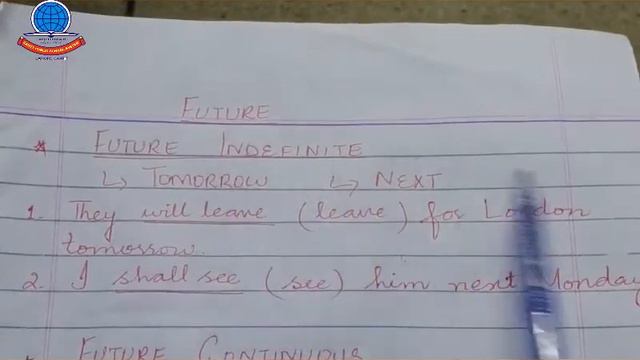 FUTURE
* FUTURE INDEFINITE
↳ TOMORROW ↳ NEXT
1. They will leave (leave) for London
tomorrow.
2. I shall see (see) him next Monday
FUTURE CONTINUOUS